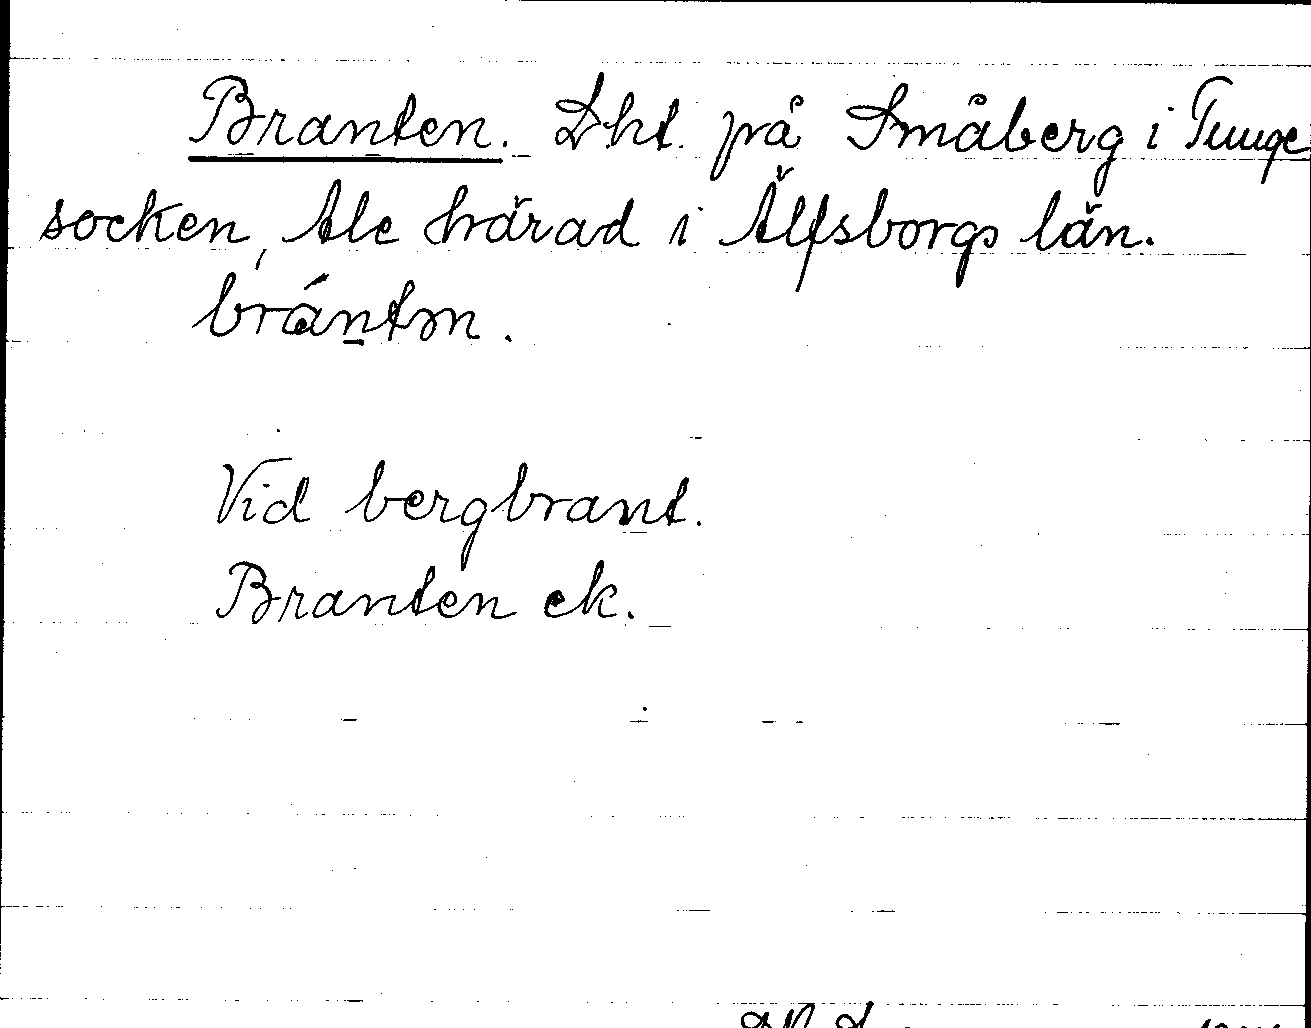 Branten. Lht. på Småberg i Tunge
socken, Ale härad i Älfsborgs län.
brántn.
Vid bergbrant.
Branten ek.